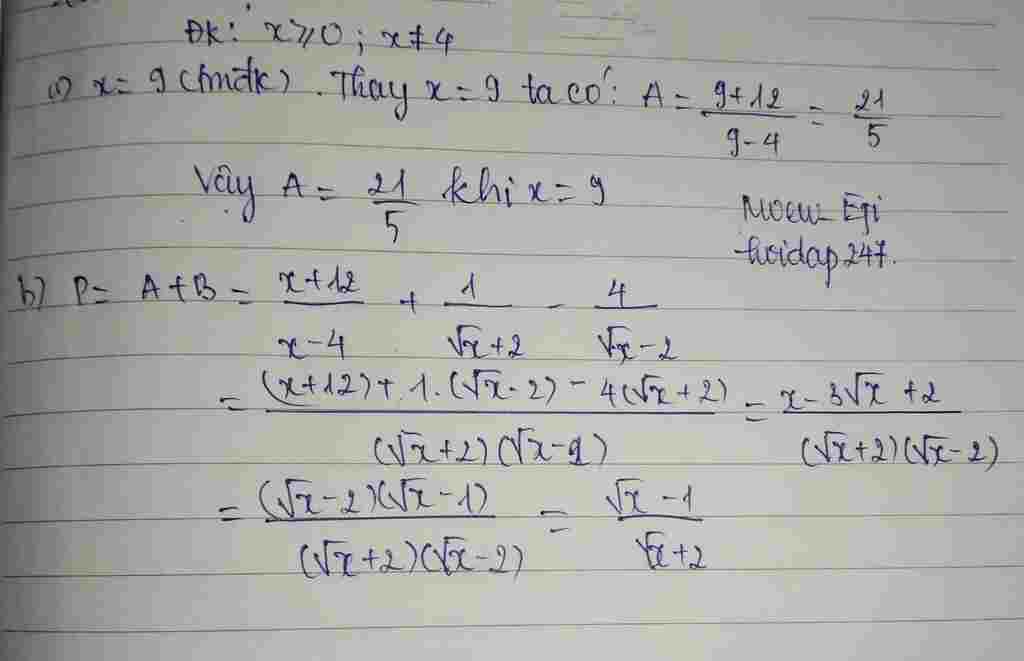 ĐK: x ⩾ 0 ; x ≠ 4
a) x = 9 (tmđk). Thay x = 9 ta có: A = \frac{9+12}{9-4} = \frac{21}{5}
Vậy A = \frac{21}{5} khi x = 9
hoidap247.
b) P = A+B = \frac{x+12}{x-4} + \frac{1}{\sqrt{x}+2} - \frac{4}{\sqrt{x}-2}
= \frac{(x+12)+1.(\sqrt{x}-2)-4(\sqrt{x}+2)}{(\sqrt{x}+2)(\sqrt{x}-2)} = \frac{x-3\sqrt{x}+2}{(\sqrt{x}+2)(\sqrt{x}-2)}
= \frac{(\sqrt{x}-2)(\sqrt{x}-1)}{(\sqrt{x}+2)(\sqrt{x}-2)} = \frac{\sqrt{x}-1}{\sqrt{x}+2}